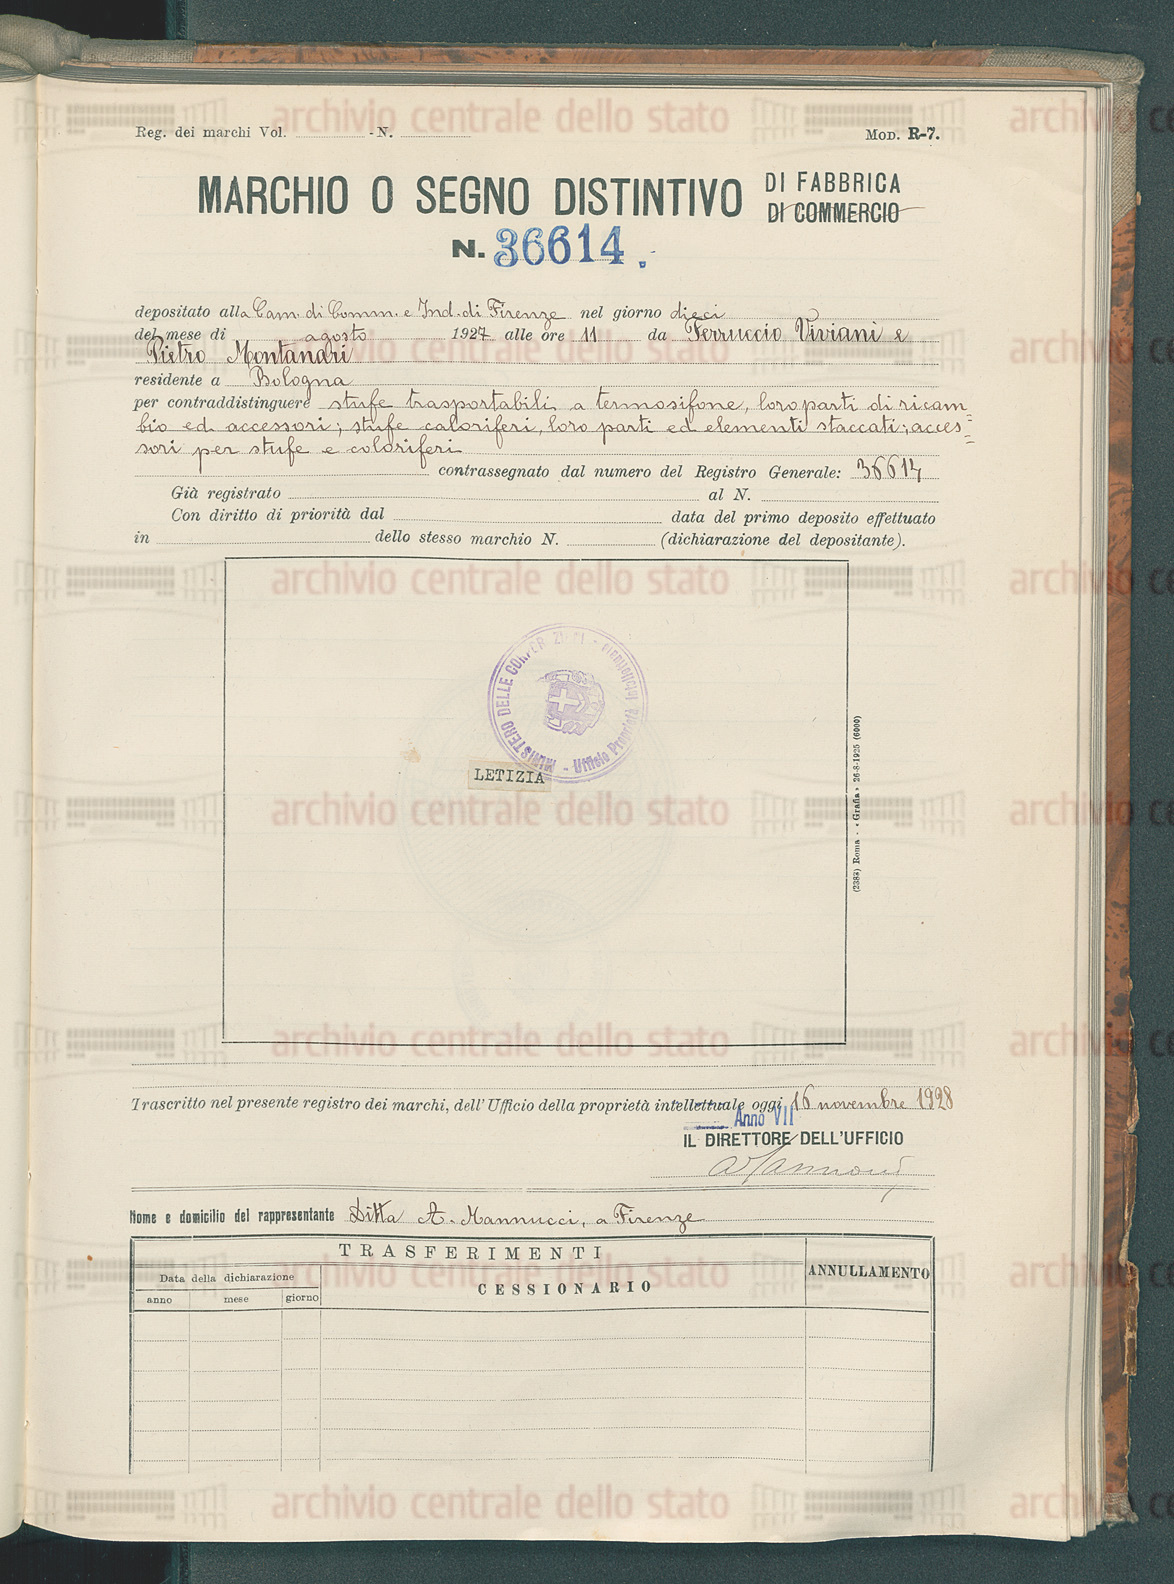 Reg. dei marchi Vol. - N. Mod. R-7.
MARCHIO O SEGNO DISTINTIVO DI FABBRICA
DI COMMERCIO
N. 36614.
depositato alla Cam. di Comm. e Ind. di Firenze nel giorno dieci
del mese di agosto 1927 alle ore 11 da Ferruccio Viviani e
Pietro Montanari
residente a Bologna
per contraddistinguere stufe trasportabili a termosifone, loro parti di ricam=
bio ed accessori; stufe caloriferi, loro parti ed elementi staccati; acces=
sori per stufe e caloriferi
contrassegnato dal numero del Registro Generale: 36614
Già registrato al N.
Con diritto di priorità dal data del primo deposito effettuato
in dello stesso marchio N. (dichiarazione del depositante).
MINISTERO DELLE CORPORAZIONI - Ufficio Proprietà Intellettuale
LETIZIA
(2383) Roma - «Grafia» 26-8-1925 (6000)
Trascritto nel presente registro dei marchi, dell'Ufficio della proprietà intellettuale oggi 16 novembre 1928
Anno VII
IL DIRETTORE DELL'UFFICIO
Nome e domicilio del rappresentante Ditta A. Mannucci, a Firenze
TRASFERIMENTI
ANNULLAMENTO
Data della dichiarazione
CESSIONARIO
anno mese giorno
archivio centrale dello stato